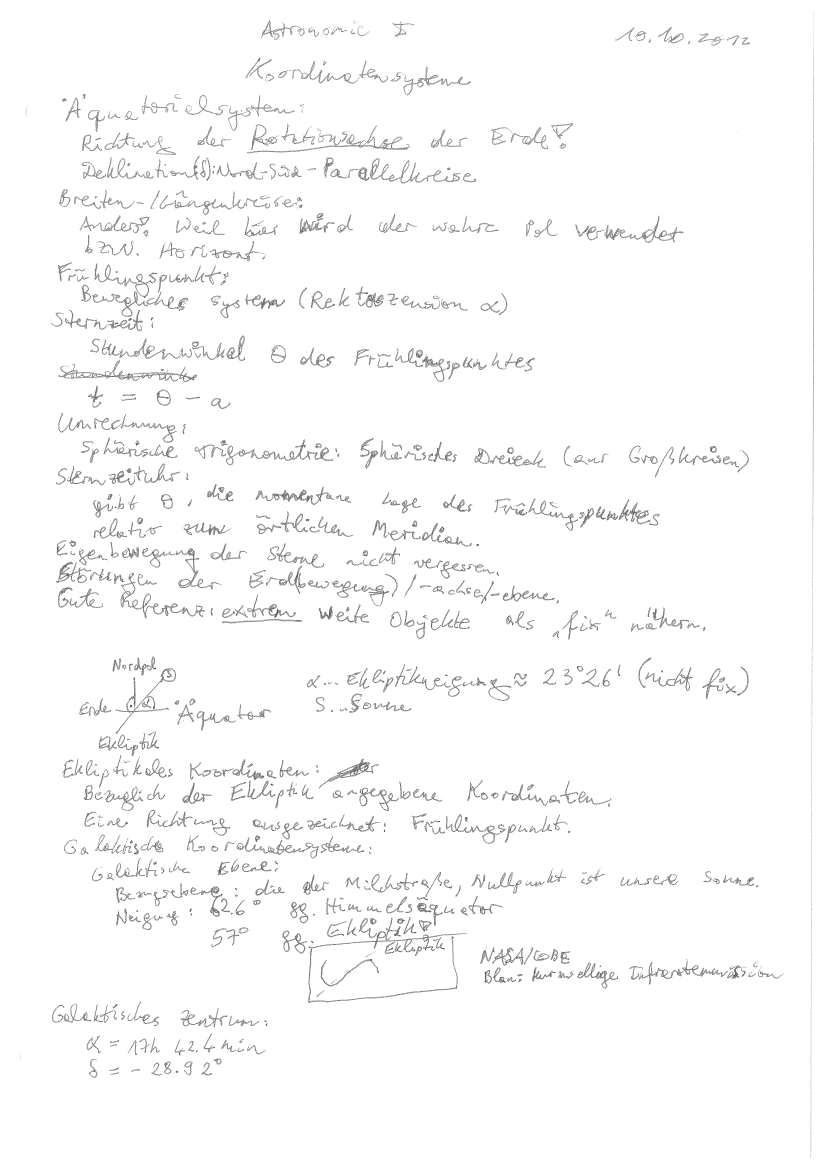 Astronomie I
10.10.2012
Koordinatensysteme
Äquatorielsystem:
Richtung der Rotationsachse der Erde!
Deklination(δ): Nord-Süd-Parallelkreise
Breiten-/Längenkreise:
Anders! Weil hier wird der wahre Pol verwendet
bzw. Horizont.
Frühlingspunkt:
Bewegliches System (Rektaszension α)
Sternzeit:
Stundenwinkel θ des Frühlingspunktes
t = θ - α
Umrechnung:
Sphärische Trigonometrie: Sphärisches Dreieck (aus Großkreisen)
Sternzeituhr:
gibt θ, die momentane Lage des Frühlingspunktes
relativ zum örtlichen Meridian.
Eigenbewegung der Sterne nicht vergessen.
Störungen der Erd(bewegung)/-achse/-ebene.
Gute Referenz: extrem weite Objekte als „fix" nähern.
Nordpol S
Erde α Äquator
Ekliptik
α... Ekliptikneigung ≈ 23°26' (nicht fix)
S... Sonne
Ekliptikales Koordinaten:
Bezüglich der Ekliptik angegebene Koordinaten.
Eine Richtung ausgezeichnet: Frühlingspunkt.
Galaktische Koordinatensysteme:
Galaktische Ebene:
Bezugsebene: die der Milchstraße, Nullpunkt ist unsere Sonne.
Neigung: 62.6° gg. Himmelsäquator
57° gg. Ekliptik!
Ekliptik
NASA/COBE
Blau: kurzwellige Infrarotemission
Galaktisches Zentrum:
α = 17h 42.4 min
δ = - 28.92°